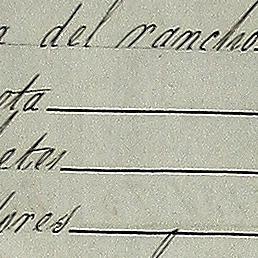 del ranchos
ota
etes
ores